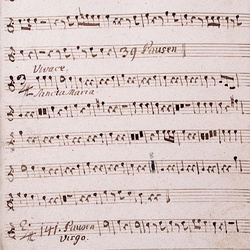 39 Pausen
Vivace.
Sancta Maria
41. Pausen
Virgo.